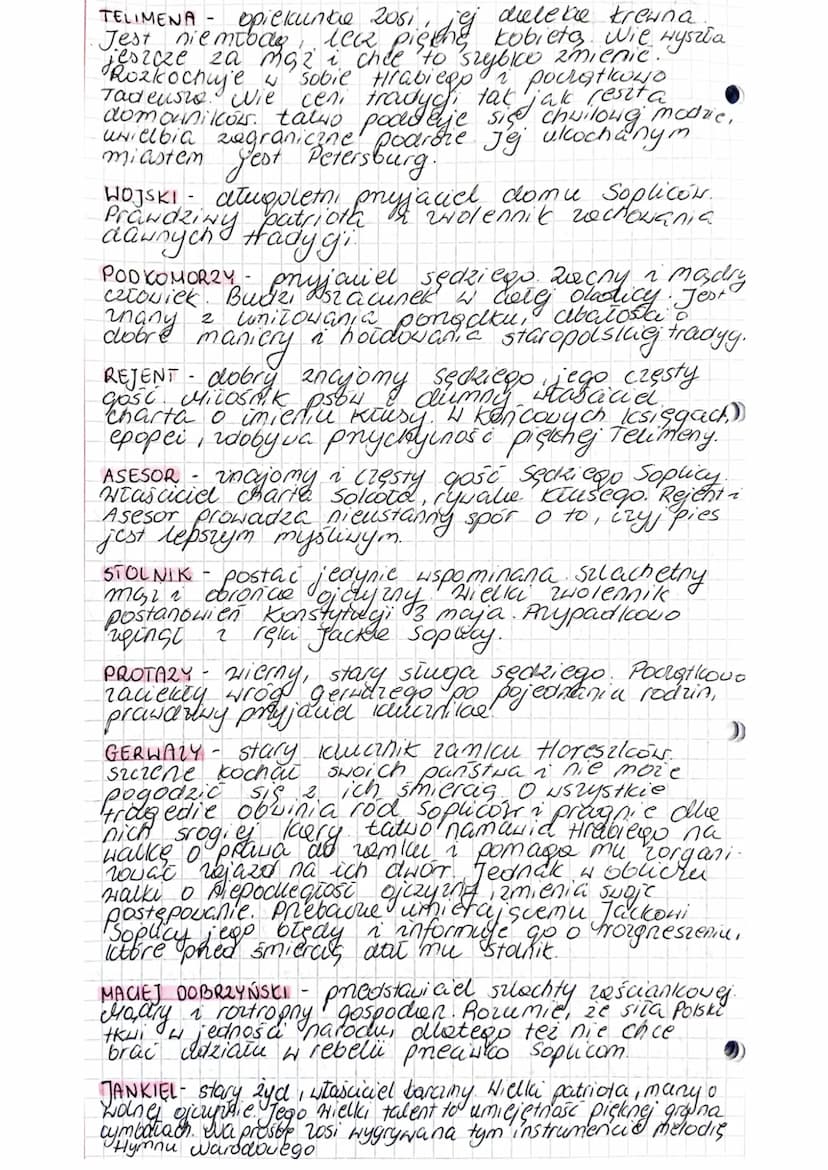 TELIMENA - opiekunka Zosi, jej daleka krewna.
Jest niemłodą, lecz piękną kobietą. Nie wyszła
jeszcze za mąż i chce to szybko zmienić.
Rozkochuje w sobie Hrabiego i początkowo
Tadeusza. Nie ceni tradycji tak jak reszta
domowników. Łatwo poddaje się chwilowej modzie,
uwielbia zagraniczne podróże. Jej ukochanym
miastem jest Petersburg.
WOJSKI - długoletni przyjaciel domu Sopliców.
Prawdziwy patriota i zwolennik zachowania
dawnych tradycji.
PODKOMORZY - przyjaciel sędziego. Zacny i mądry
człowiek. Budzi szacunek w całej okolicy. Jest
znany z umiłowania porządku, dbałości o
dobre maniery i hołdowania staropolskiej tradycji.
REJENT - dobry znajomy sędziego, jego częsty
gość. Miłośnik psów i dumny właściciel
charta o imieniu Kusy. W końcowych księgach,
epopei, zdobywa przychylność pięknej Telimeny.
ASESOR - znajomy i częsty gość Sędziego Soplicy.
Właściciel charta Sokoła, rywala Kusego. Rejent i
Asesor prowadzą nieustanny spór o to, czyj pies
jest lepszym myśliwym.
STOLNIK - postać jedynie wspominana. Szlachetny
mąż i obrońca ojczyzny. Wielki zwolennik
postanowień Konstytucji 3 maja. Przypadkowo
zginął z ręki Jacka Soplicy.
PROTAZY - wierny, stary sługa sędziego. Początkowo
zaciekły wróg Gerwazego po pojednaniu rodzin,
prawdziwy przyjaciel klucznika.
GERWAZY - stary klucznik zamku Horeszków.
Szczerze kochał swoich państwa i nie może
pogodzić się z ich śmiercią. O wszystkie
tragedie obwinia ród Sopliców i pragnie dla
nich srogiej kary. Łatwo namawia Hrabiego na
walkę o prawa do zamku i pomaga mu zorgani-
zować zajazd na ich dwór. Jednak w obliczu
walki o niepodległość ojczyzny, zmienia swoje
postępowanie. Przebacza umierającemu Jackowi
Soplicy jego błędy i informuje go o rozgrzeszeniu,
które przed śmiercią dał mu Stolnik.
MACIEJ DOBRZYŃSKI - przedstawiciel szlachty zaściankowej.
Mądry i roztropny gospodarz. Rozumie, że siła Polski
tkwi w jedności narodu, dlatego też nie chce
brać udziału w rebelii przeciwko Soplicom.
JANKIEL - stary żyd, właściciel karczmy. Wielki patriota, marzy o
wolnej ojczyźnie. Jego wielki talent to umiejętność pięknej gry na
cymbałach. Na prośbę Zosi wygrywa na tym instrumencie melodię
Hymnu Narodowego